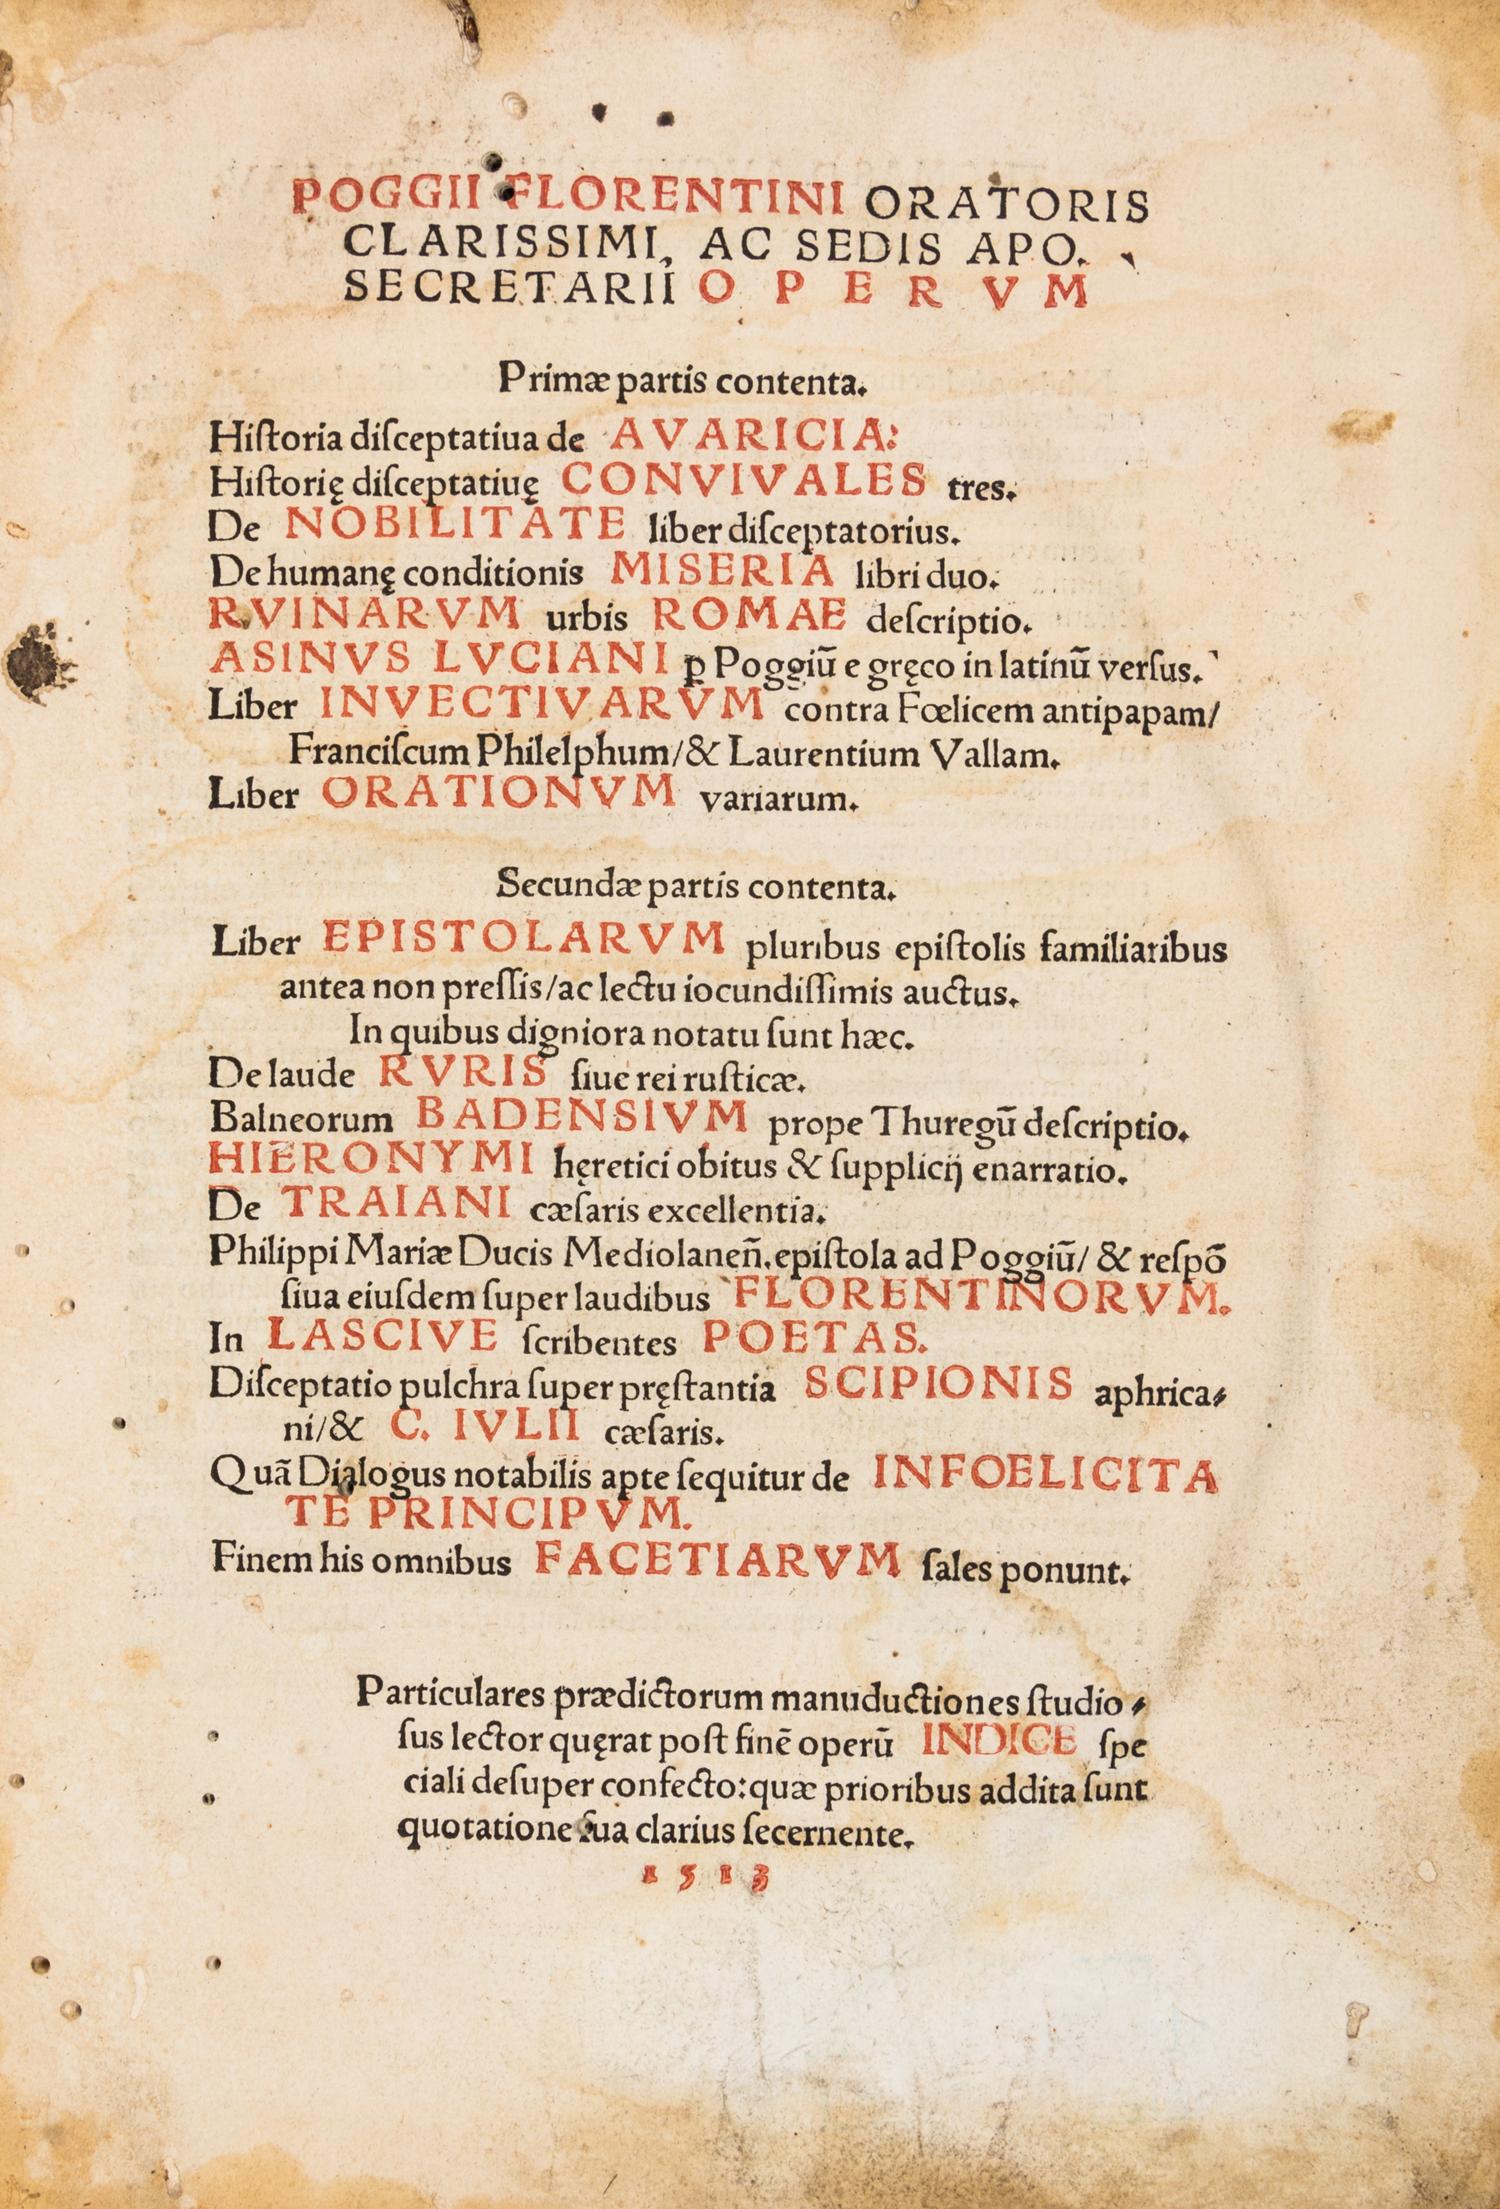 POGGII FLORENTINI ORATORIS
CLARISSIMI, AC SEDIS APO.
SECRETARII OPERVM
Primæ partis contenta.
Hiſtoria diſceptatiua de AVARICIA:
Hiſtorię diſceptatiuę CONVIVALES tres.
De NOBILITATE liber diſceptatorius.
De humanę conditionis MISERIA libri duo.
RVINARVM urbis ROMAE deſcriptio.
ASINVS LVCIANI ꝑ Poggiū e gręco in latinū verſus.
Liber INVECTIVARVM contra Fœlicem antipapam/
Franciſcum Philelphum/& Laurentium Vallam.
Liber ORATIONVM variarum.
Secundæ partis contenta.
Liber EPISTOLARVM pluribus epiſtolis familiaribus
antea non preſſis/ac lectu iocundiſſimis auctus.
In quibus digniora notatu ſunt hæc.
De laude RVRIS ſiue rei ruſticæ.
Balneorum BADENSIVM prope Thuregū deſcriptio.
HIERONYMI hęretici obitus & ſupplicij enarratio.
De TRAIANI cæſaris excellentia.
Philippi Mariæ Ducis Mediolaneñ.epiſtola ad Poggiū/ & reſpō
ſiua eiuſdem ſuper laudibus FLORENTINORVM.
In LASCIVE ſcribentes POETAS.
Diſceptatio pulchra ſuper pręſtantia SCIPIONIS aphrica⸗
ni/& C. IVLII cæſaris.
Quā Dialogus notabilis apte ſequitur de INFOELICITA
TE PRINCIPVM.
Finem his omnibus FACETIARVM ſales ponunt.
Particulares prædictorum manuductiones ſtudio⸗
ſus lector quęrat poſt finē operū INDICE ſpe
ciali deſuper confecto:quæ prioribus addita ſunt
quotatione ſua clarius ſecernente.
1513